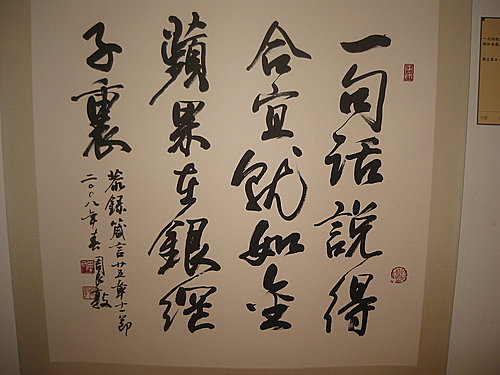 一句话説得
合宜就如金
蘋果在銀網
子裏
恭録箴言廿五章十一節
二〇〇八年春